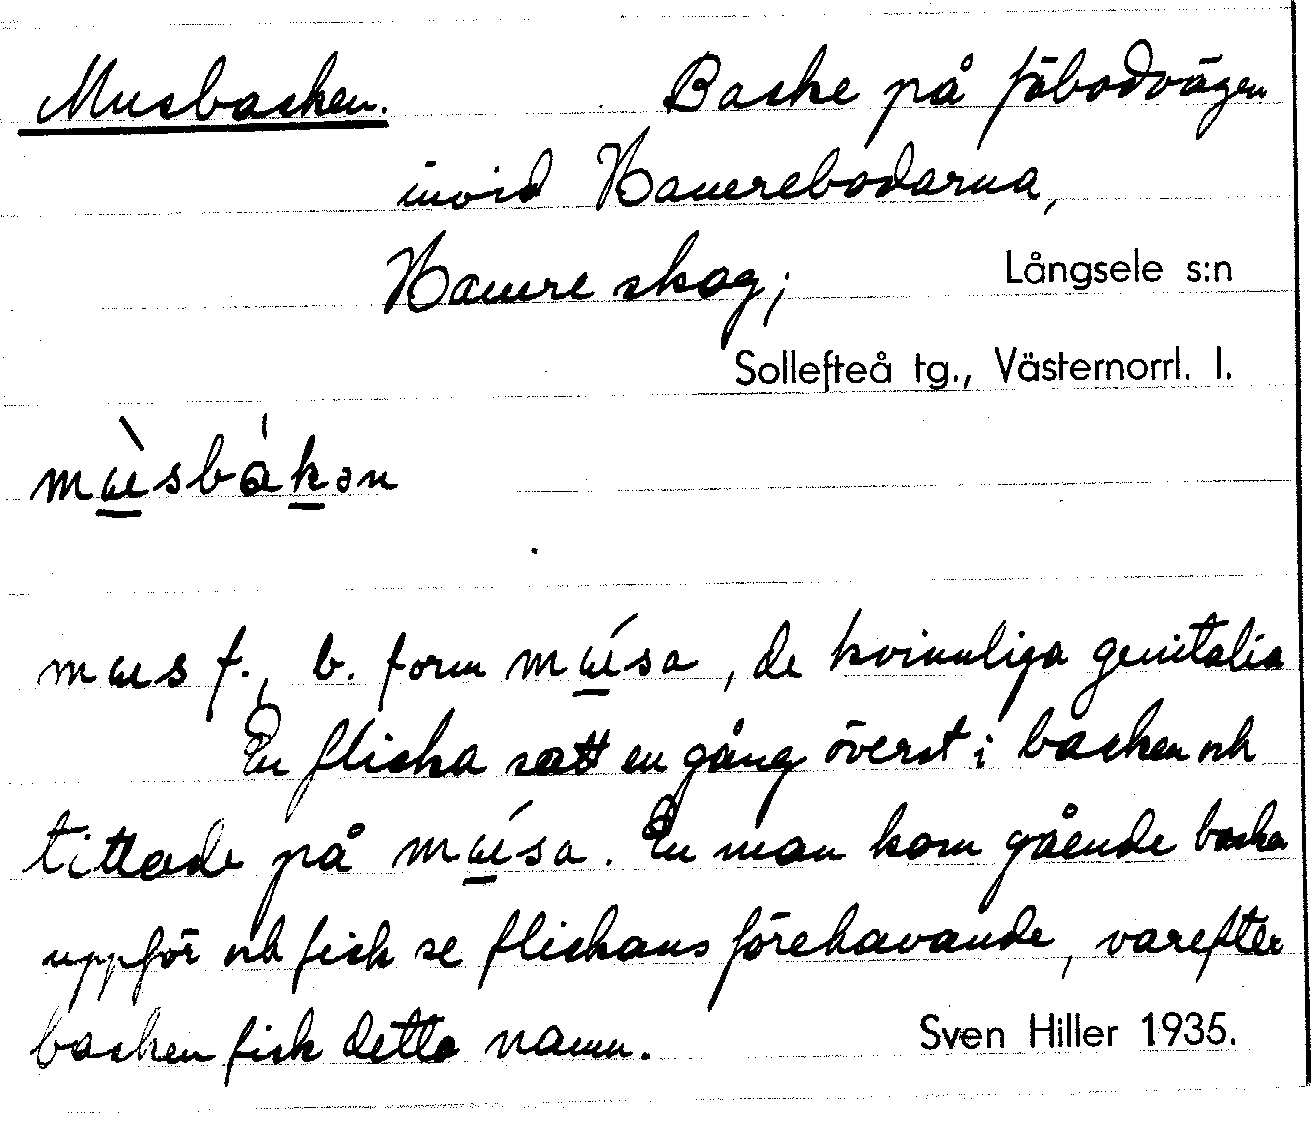 Musbacken. Backe på fäbodvägen
invid Hamrebodarna,
Hamre skog; Långsele s:n
Sollefteå tg., Västernorrl. l.
mùsbákən
mus f., b. form músa, de kvinnliga genitalia
En flicka satt en gång överst i backen och
tittade på músa. En man kom gående backen
uppför och fick se flickans förehavande, varefter
backen fick detta namn. Sven Hiller 1935.